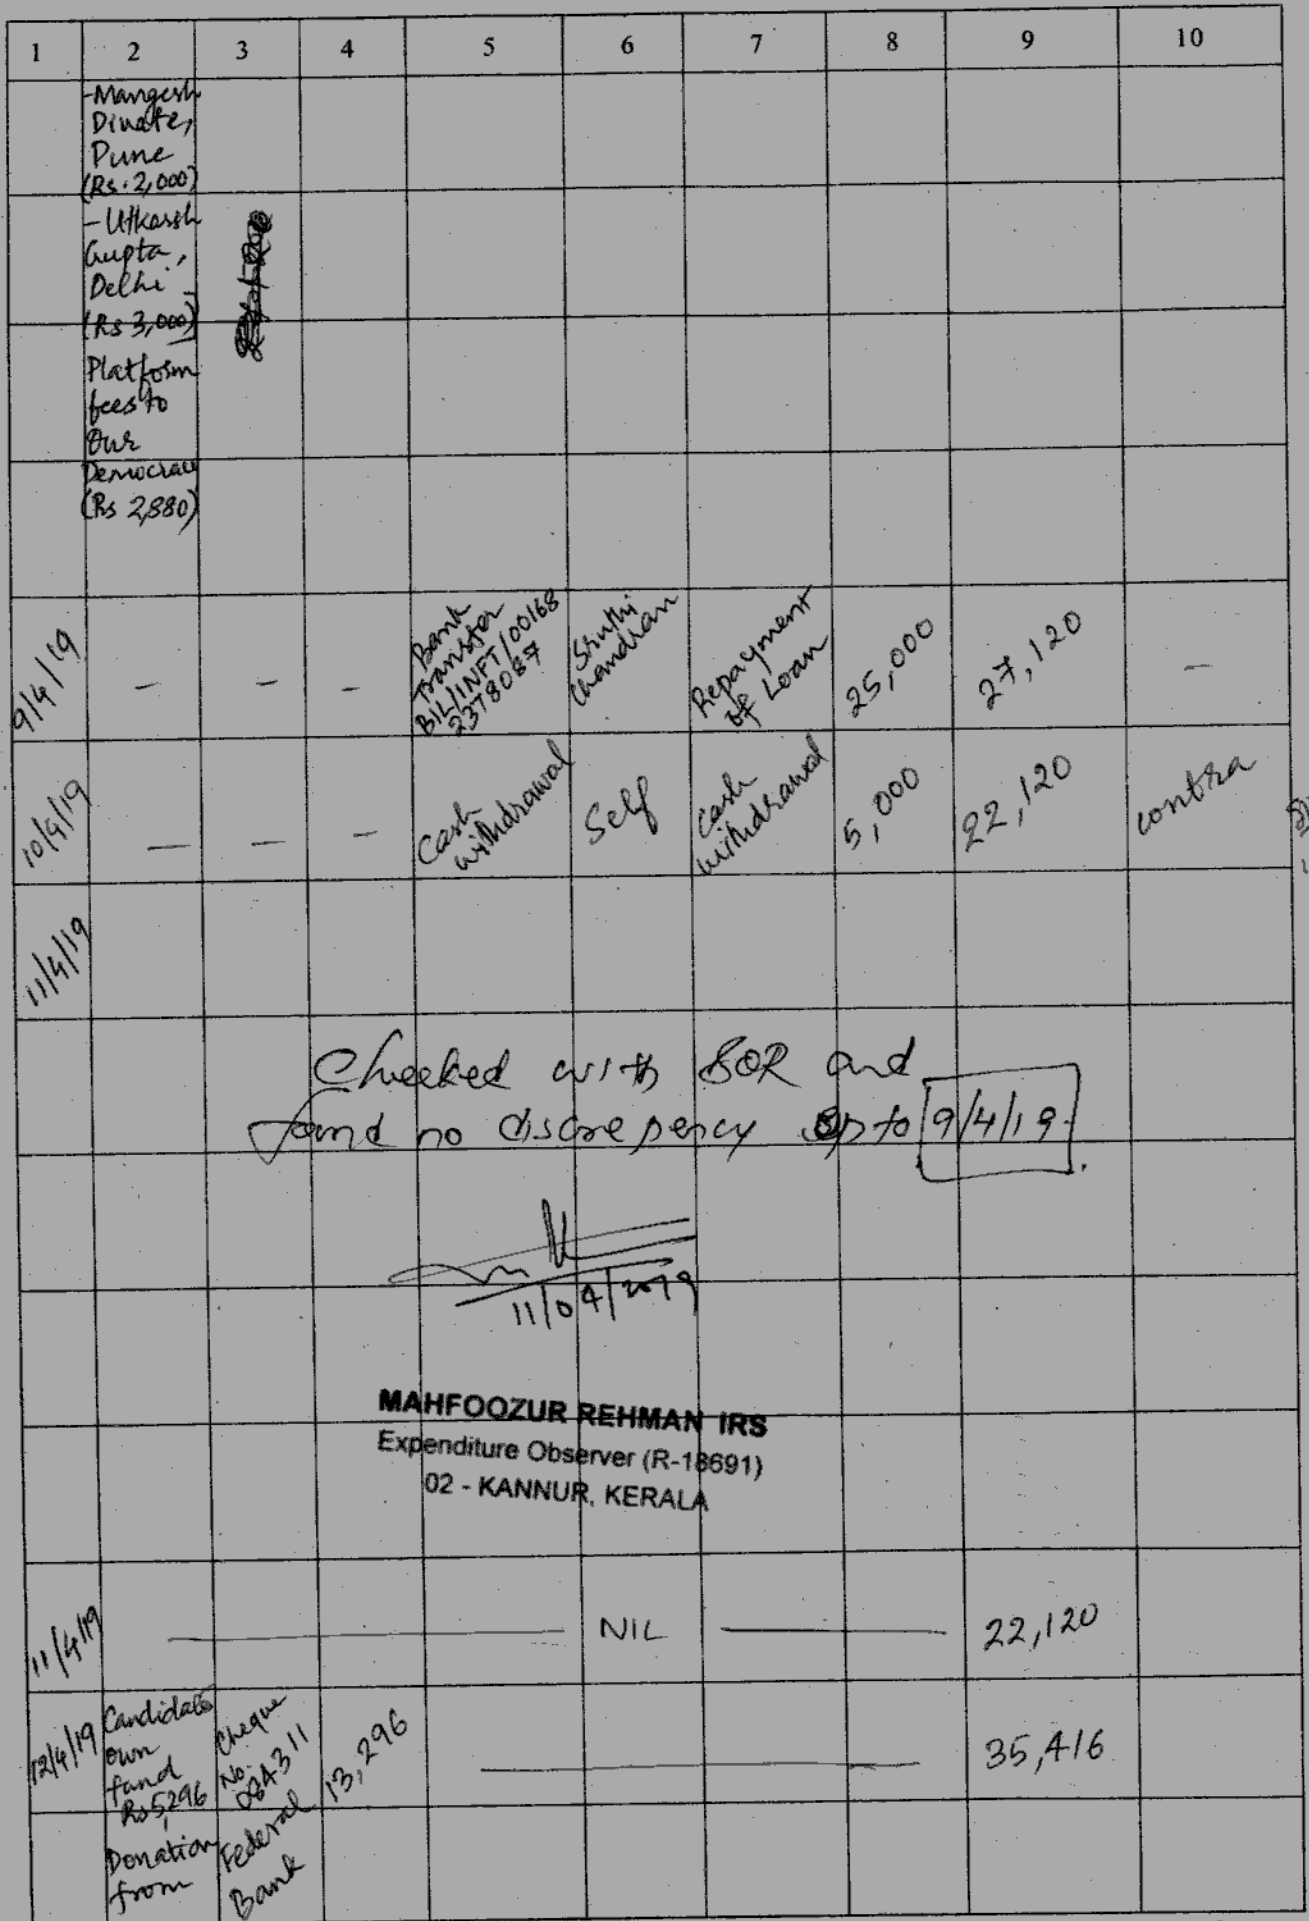 1 2 3 4 5 6 7 8 9 10
-Mangesh
Divate,
Pune
(Rs. 2,000)
- Utkarsh
Gupta,
Delhi -
(Rs 3,000)
Platform
fees to
Our
Democracy
(Rs 2,880)
9/4/19 - - - Bank
Transfer
BIL/INFT/00168
2378087
Sruthi
Chandran
Repayment
of Loan
25,000 27,120 -
10/4/19 - - - Cash
withdrawal
Self
Cash
withdrawal
5,000 22,120 contra
11/4/19
Checked with SOR and
found no discrepency upto 9/4/19.
11/04/2019
MAHFOOZUR REHMAN IRS
Expenditure Observer (R-18691)
02 - KANNUR, KERALA
11/4/19 NIL 22,120
12/4/19 Candidate
own
fund
Rs 5,296
Donation
from
Cheque
No.
084311
Federal
Bank
13,296 35,416